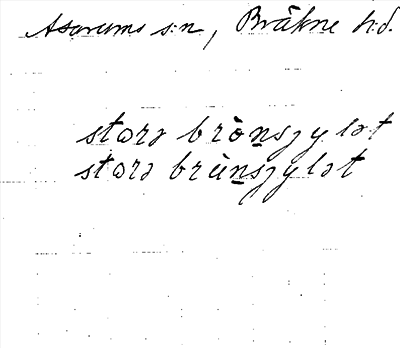 Asarums s:n, Bräkne h.d.
starə brònsjylət
starə brùnsjylət